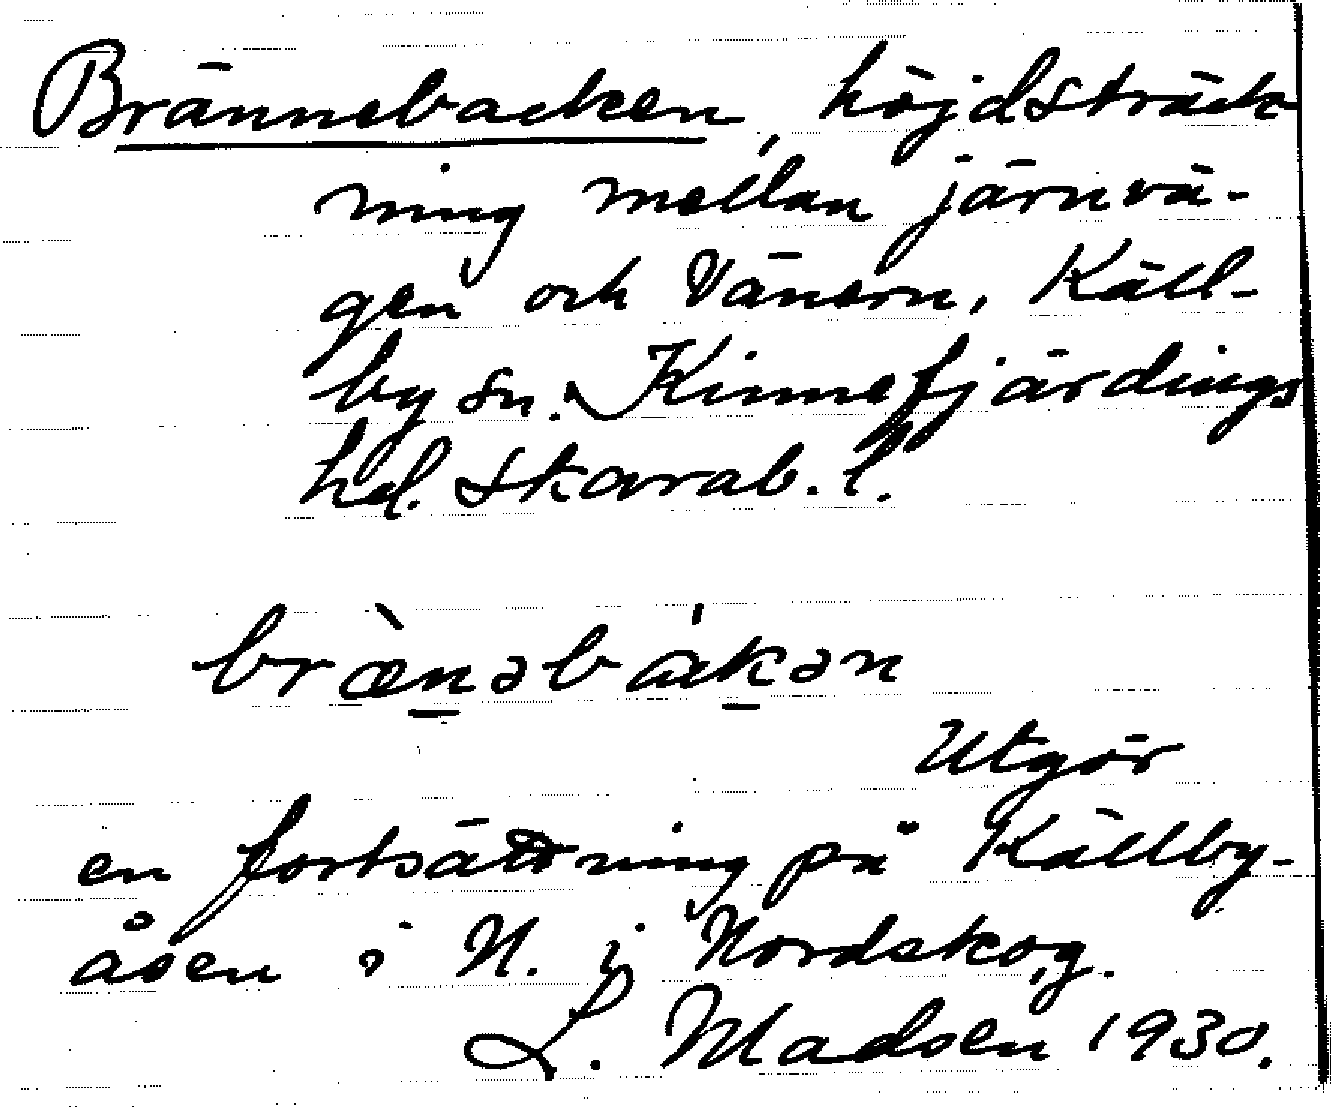 Brännebacken, höjdsträck
ning mellan järnvä-
gen och Vänern, Käll-
by sn. Kinnefjärdings
hd. Skarab. l.
bræ̀nəbákən
Utgör
en fortsättning på Källby-
åsen i N. i Nordskog.
L. Madsen 1930.